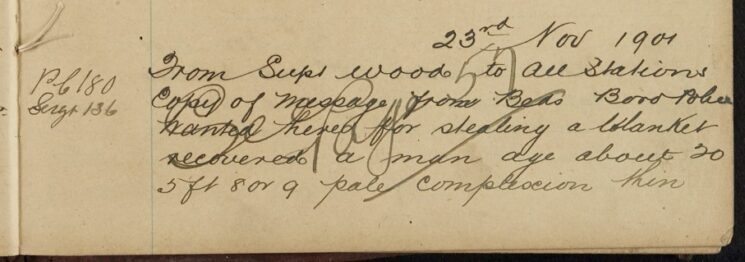 23rd Nov 1901
PC 180
Sergt 136
From Supt Wood to All Stations
Copy of Message from Beds Boro Police
Wanted here for stealing a blanket
recovered a man age about 20
5ft 8 or 9 pale complexion thin